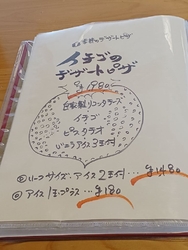 季節のデザートピザ
イチゴの
デザートピザ
¥1980
自家製リコッタチーズ
イチゴ
ピスタチオ
ジェラアイス3玉付
◎ハーフサイズ、アイス2玉付…¥1480
◎アイス1玉プラス…¥180